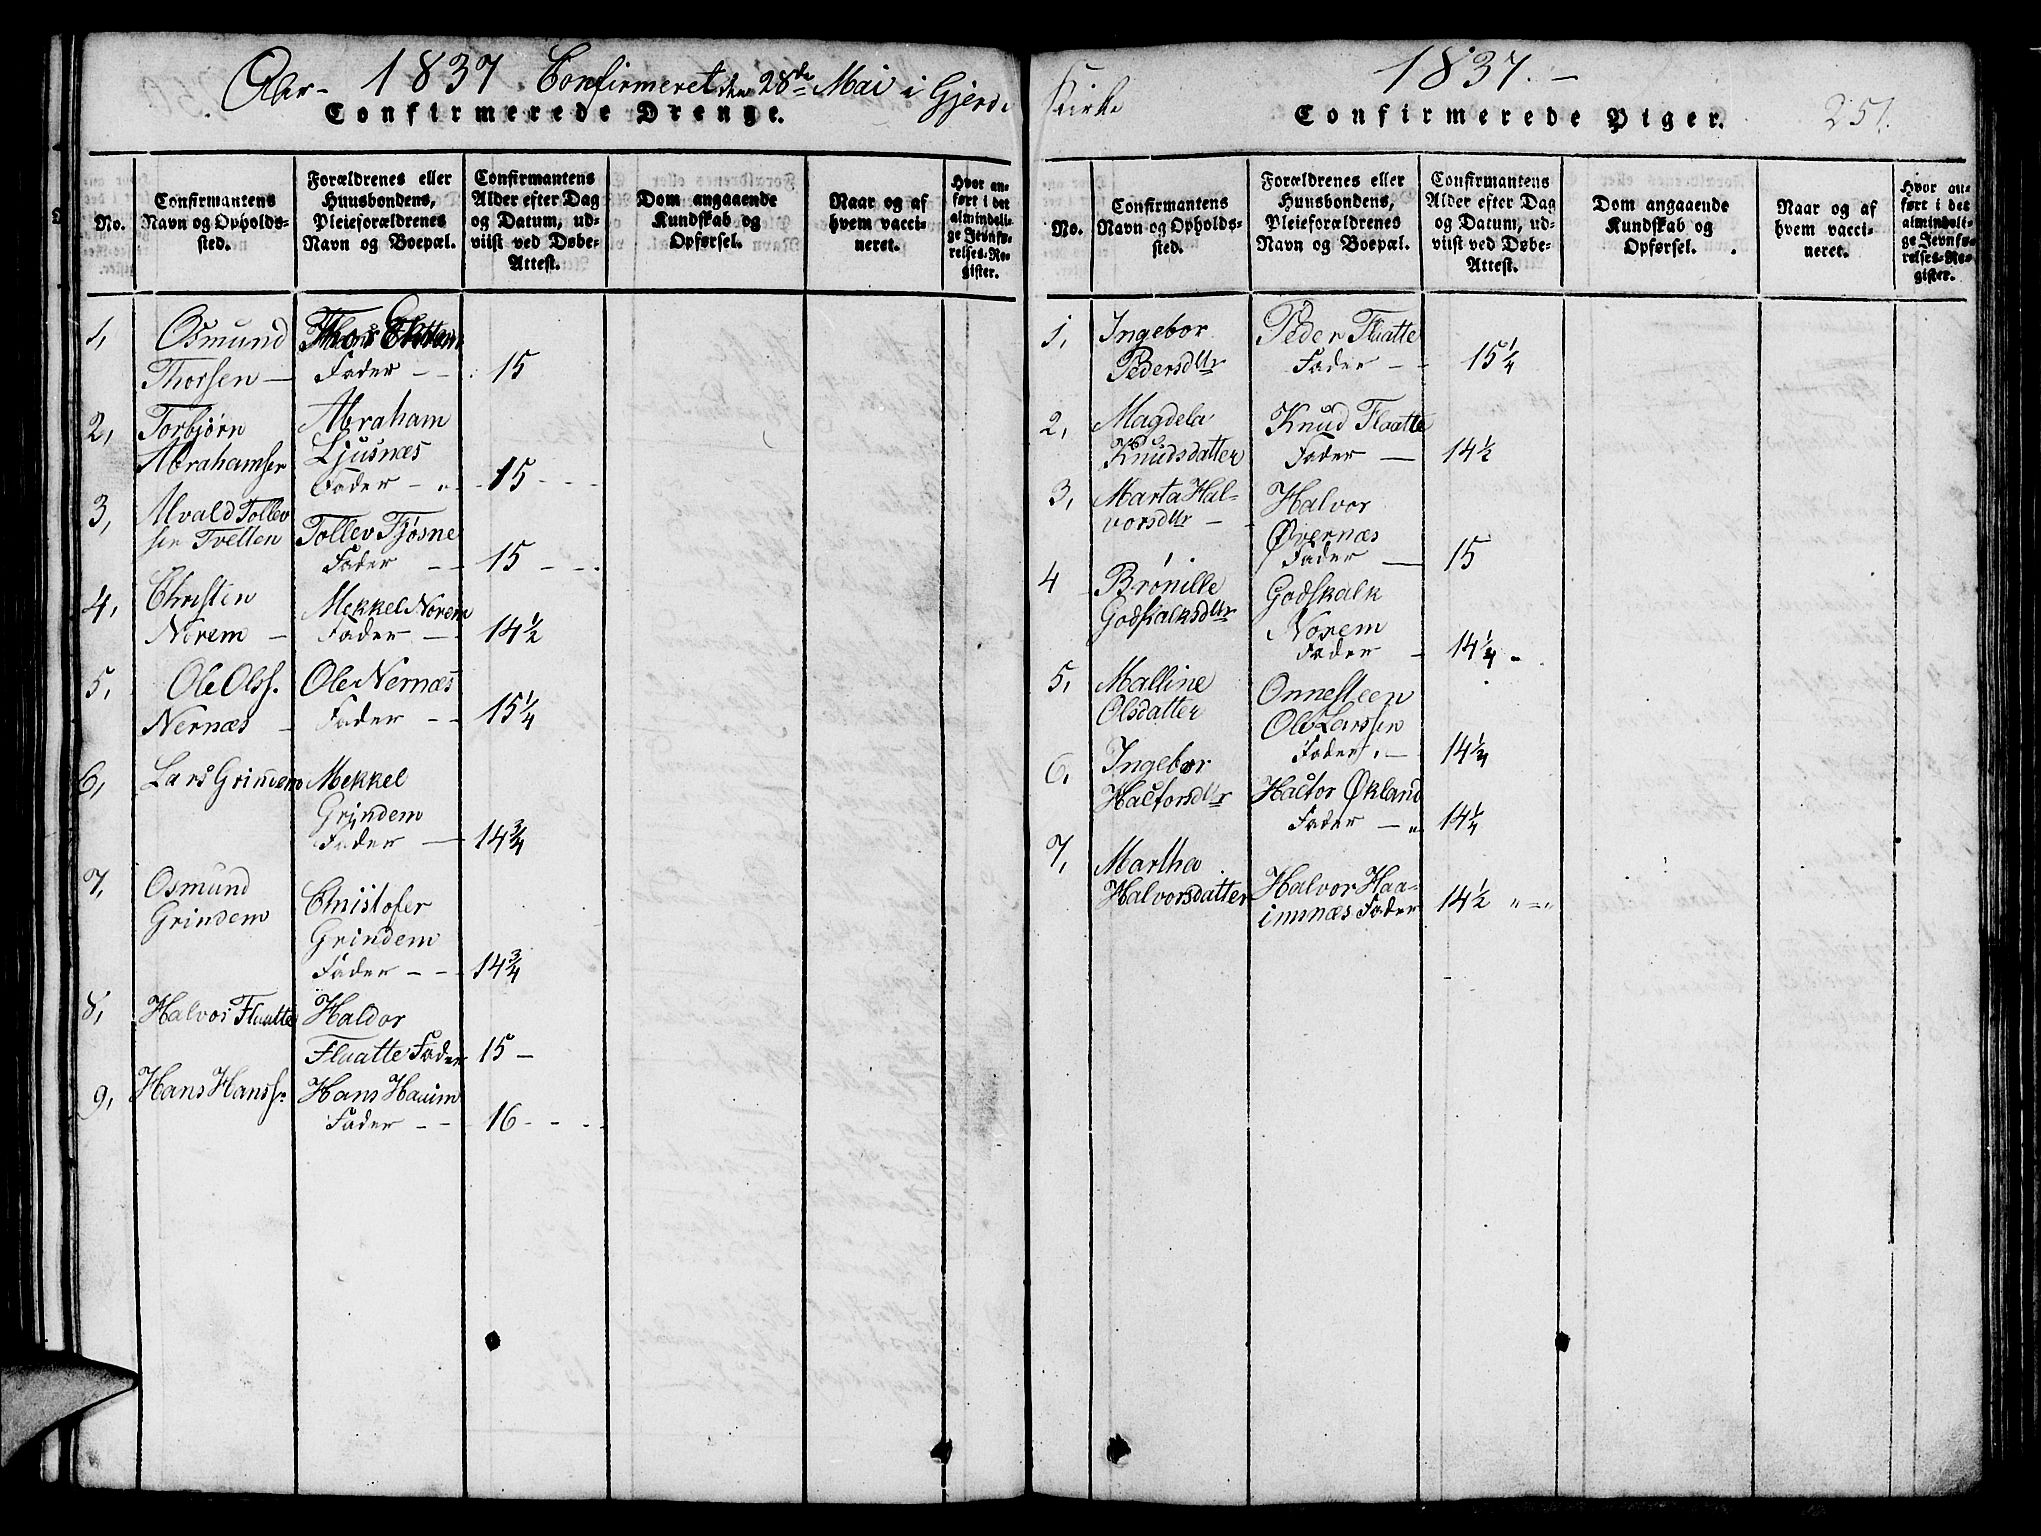 Aar - 1837. Confirmeret den 28de Mai i Gjerde
Confirmerede Drenge.
No.
Confirmantens
Navn og Opholds-
sted.
Forældrenes eller
Huusbondens,
Pleieforældrenes
Navn og Boepæl.
Confirmantens
Alder efter Dag
og Datum, ud-
viist ved Døbe-
Attest.
Dom angaaende
Kundskab og
Opførsel.
Naar og af
hvem vacci-
neret.
Hvor an-
ført i det
almindeli-
ge Jevnfø-
relses-Re-
gister.
1, Osmund Thor
Thorsen — Fader - - 15
2, Torbjørn Abraham
Abrahamsen Ljusnæs
Fader - - 15 - - -
3, Alvald Tollev
sen Tvetten Tollev Fjøsne
Fader - - 15 - - -
4, Christen Mekkel Norem
Norem - Fader - - 14½
5, Ole Olss. Ole Nernæs
Nernæs - Fader - - 15¼
6, Lars Grindem Mekkel
Grindem
Fader — 14¾
7, Osmund Christofer
Grindem Grindem
Fader - - - 14¾
8, Halvor Flaatte Haldor
Flaatte Fader 15 -
9, Hans Hanss. Hans Haaim
Fader - - 16 - - -
Kirke
1837. -
Confirmerede Piger.
251.
No.
Confirmantens
Navn og Opholds-
sted.
Forældrenes eller
Huusbondens,
Pleieforældrenes
Navn og Boepæl.
Confirmantens
Alder efter Dag
og Datum, ud-
viist ved Døbe-
Attest.
Dom angaaende
Kundskab og
Opførsel.
Naar og af
hvem vacci-
neret.
Hvor an-
ført i det
almindeli-
ge Jevnfø-
relses-Re-
gister.
1, Ingebor Peder Flaatte
Pedersdttr Fader - - 15¼
2, Magdela Knud Flaatte
Knudsdatter Fader — 14½
3, Marta Hal- Halvor
vorsdttr - - Øvernæs
Fader — 15
4 Brønille Godskalk
Godskalksdttr Norem
Fader - 14¼ -
5, Malline Onnesteen
Olsdatter Ole Larssen
Fader. - 14¼
6, Ingebor Hactor Økland
Hactorsdttr Fader - „ 14¼
7, Martha Halvor Haa-
Halvorsdatter imsnæs Fader 14½ „ - „